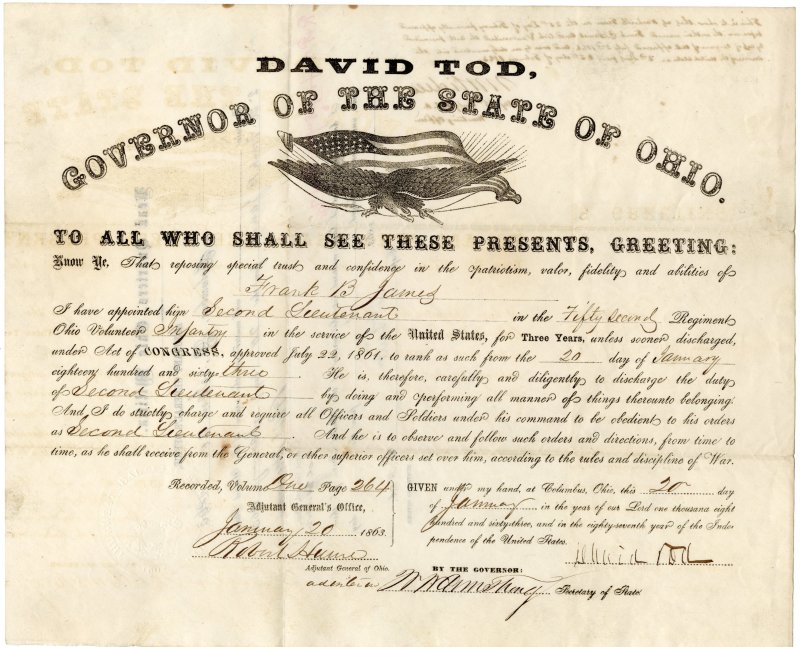 DAVID TOD,
GOVERNOR OF THE STATE OF OHIO.
TO ALL WHO SHALL SEE THESE PRESENTS, GREETING:
Know Ye, That reposing special trust and confidence in the patriotism, valor, fidelity and abilities of
Frank B James
I have appointed him Second Lieutenant in the Fifty second Regiment
Ohio Volunteer Infantry in the service of the United States, for Three Years, unless sooner discharged,
under Act of CONGRESS, approved July 22, 1861, to rank as such from the 20 day of January
eighteen hundred and sixty-three He is, therefore, carefully and diligently to discharge the duty
of Second Lieutenant by doing and performing all manner of things thereunto belonging.
And, I do strictly charge and require all Officers and Soldiers under his command to be obedient to his orders
as Second Lieutenant. And he is to observe and follow such orders and directions, from time to
time, as he shall receive from the General, or other superior officers set over him, according to the rules and discipline of War.
Recorded, Volume One Page 264
Adjutant General's Office,
January 20 1863.
Robert
Adjutant General of Ohio.
ad interim
GIVEN under my hand, at Columbus, Ohio, this 20 day
of January in the year of our Lord one thousand eight
hundred and sixty-three, and in the eighty-seventh year of the Inde-
pendence of the United States.
David Tod
BY THE GOVERNOR:
W W Armstrong Secretary of State